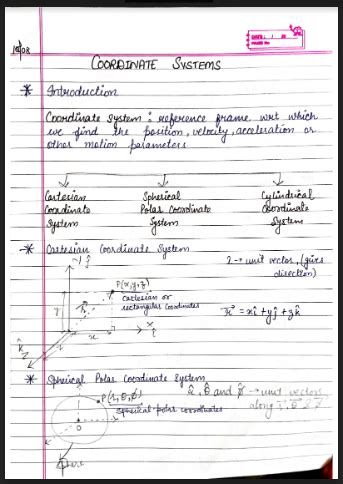 DATE: / /
PAGE NO.
COORDINATE SYSTEMS
* Introduction
Coordinate System : reference frame wrt which
we find the position, velocity, acceleration or
other motion parameters
Cartesian Coordinate System
Spherical Polar Coordinate System
Cylindrical Coordinate System
* Cartesian Coordinate System
→ unit vector, (gives direction)
P(x,y,z)
cartesian or rectangular coordinates
r = xî + yĵ + zk̂
ĵ
y
r
x
î
z
k̂
* Spherical Polar Coordinate System
r̂, θ̂ and φ̂ → unit vectors
P(r, θ, φ)
along
spherical polar coordinates
O